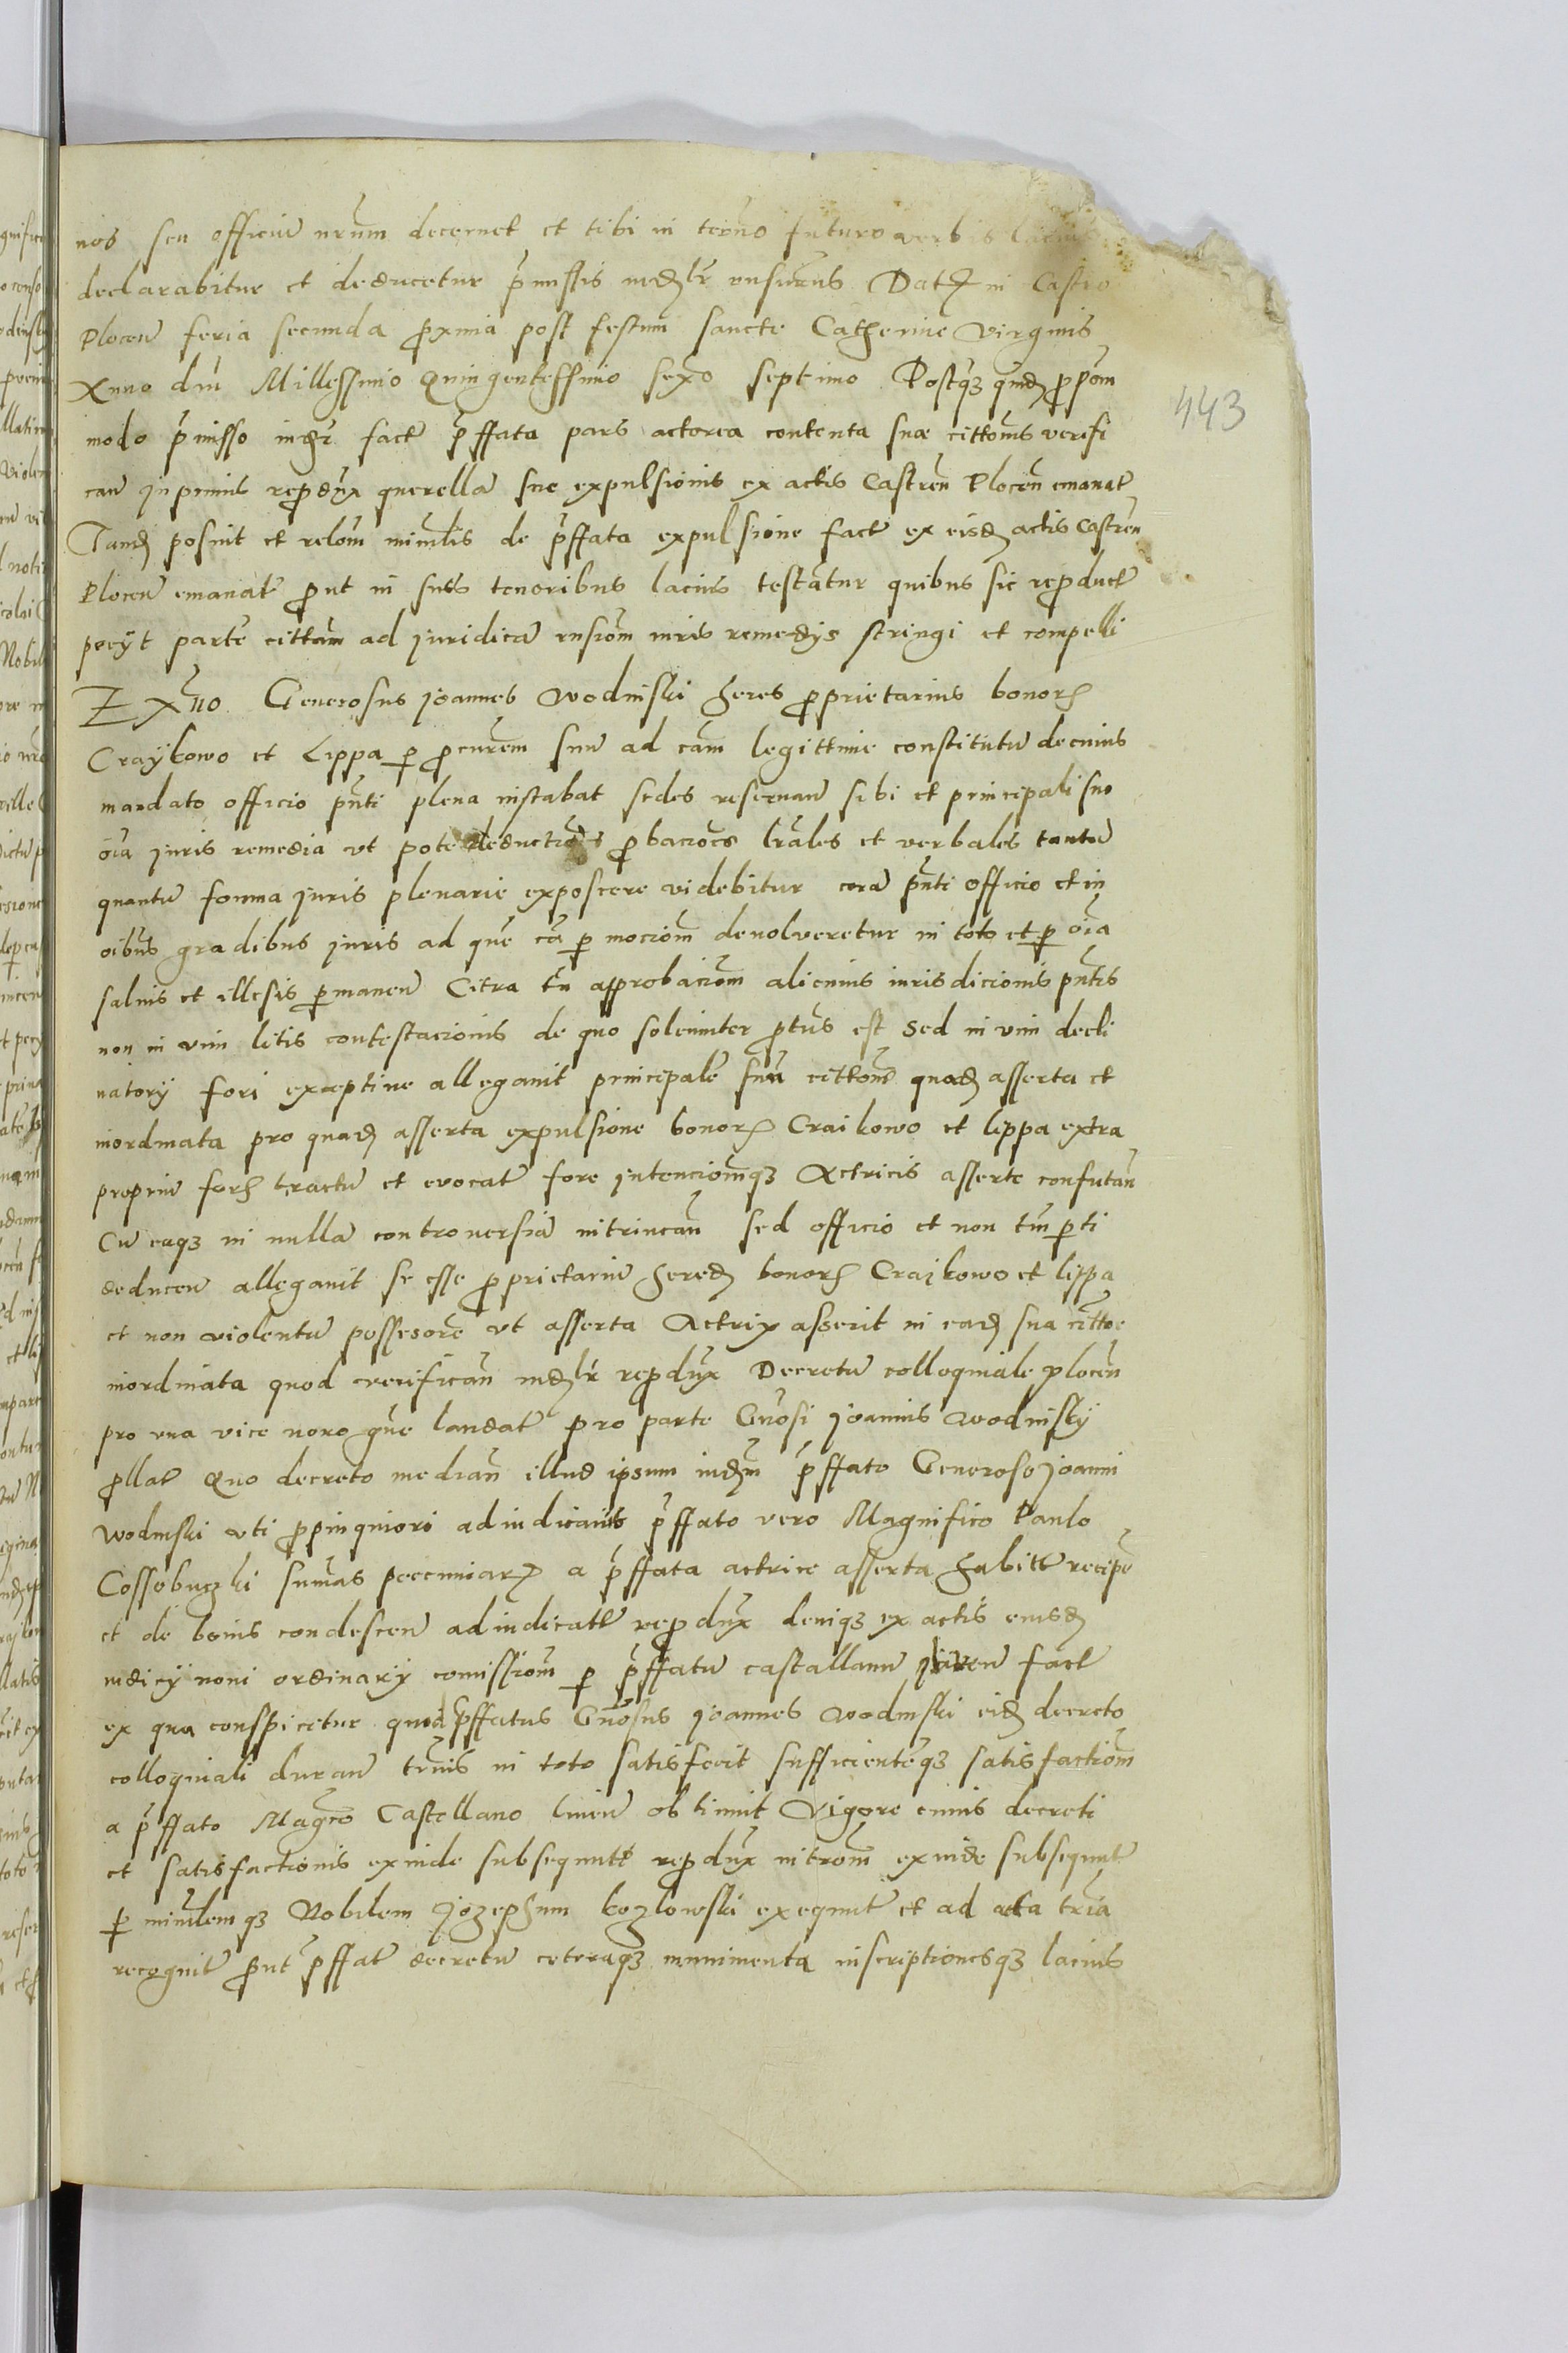 nos seu officiu nrum decernet et tibi in termo futuro verbis lacius
declarabitur et deducetur pmissis iudlr rnsurus Dat in Castro
Plocen feria secunda pxima post festum sancte Catherine virginis
Anno dni Millessimo Quingentessimo sexo septimo Postqz quid pposn
modo pmisso fact pffata pars actorea contenta sue cittonis verifi
can Inprimis repdux querella sue expulsionis ex actis Castren Plocen emanat
Tand posuit et relom minlis de pffata expulsione fact ex eisd actis Castren
Plocen emanat put in suis tenoribus lacius testatur quibus sic repduct
pecyt parte cittam ad juridica rnsiom iuris remedys stringi et compelli
Ex Xno Generosus Joannes Wodniski heres pprietarius bonor
Craykowo et Lippa p pcurem suu ad cam legittime constitutu de cuius
mandato officio pnti plena instabat sedes reservan sibi et principali suo
oia juris remedia ut pote deductiones pbacioes lrales et verbales tantu
quantu forma juris plenarie exposcere videbitur cora pnti officio et in
oibus gradibus juris ad que ca p mociom devolveretur in toto et p oia
salvis et illesis pmanen Citra tn approbaciom alicuius iurisdicionis pntis
non in vim litis contestacionis de quo soleniter ptus est sed in vim decli
natory fori exceptine allegavit principale suu cittom quad asserta et
inordinata pro quad asserta expulsione bonor Craikowo et Lippa extra
propriu for tractu et evocat fore Intenciomqz Actricis asserte confutan
Cu eaqz in nulla controversia intrincan sed officio et non tm pti
deducen allegavit se esse pprietariu hered bonor Craikowo et Lippa
et non violentu possesore ut asserta Actrix asserit in ead sua citto
inordinata quod verifican indlr repdux Decretu colloquiale plocen
pro una vice novo que laudat pro parte Gnosi Joannis Wodnisky
pllat Quo decreto median illud ipsum iudm pffato Generoso Joanni
Wodniski uti ppinquiori adiudicavit pffato vero Magnifico Paulo
Cossobuczki sumas pecuniar a pffata actrice asserta habitt recipe
et de bonis condescen adiudicatt repdux deniqz ex actis eiusd
iudicy novi ordinary comissiom p pffatu castallanu fact
ex qua conspicetur quia pffatus Gnosus Joannes Wodniski eid decreto
colloquiali duran tmis in toto satisfecit sufficienteqz satisfactiom
a pffato Magco Castellano Liven obtinuit Vigore cuius decreti
et satisfactionis exinde subsequutt repdux introm exinde subsequut
p minlemqz Nobilem Jozephum Kozlowski exequut et ad acta tria
recognit put pffat decretu ceteraqz munimenta inscriptionesqz lacius
443